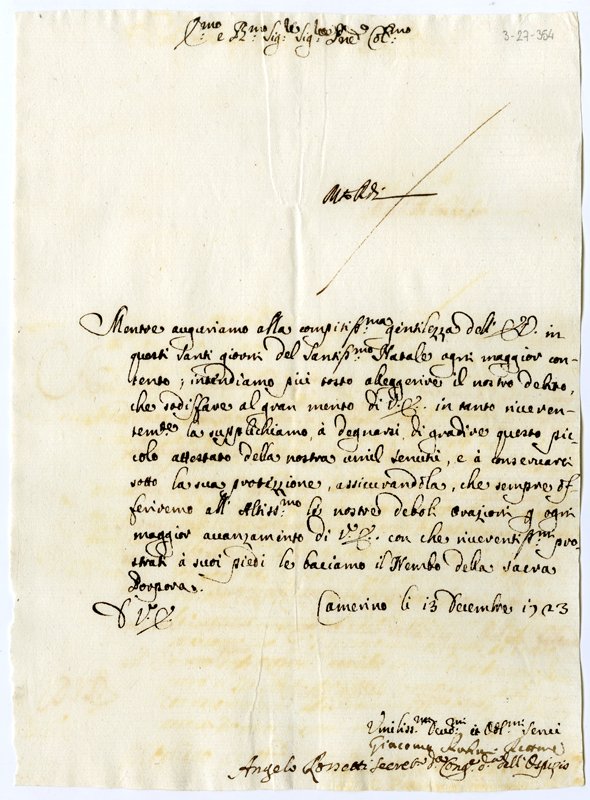 3-27-364
E.mo e R.mo Sig.re Sig.re Pne Col.mo
Mentre auguriamo alla compitiss.ma gentilezza dell' E.V. in
questi santi giorni del Santiss.mo Natale ogni maggior con-
tento; intendiamo più tosto alleggerire il nostro debito,
che sodisfare al gran merito di V.E. in tanto riveren-
tem.te la supplichiamo, à degnarsi di gradire questo pic-
colo attestato della nostra umil servitù, e à conservarci
sotto la sua protezzione, assicurandola, che sempre of-
feriremo all' Altiss.mo le nostre deboli orazioni p ogni
maggior avanzamento di V.E. con che riverentiss.mi pro-
strati à suoi piedi le baciamo il Nembo della sacra
Porpora.
D V.E.
Camerino li 13 Decembre 1723
Umiliss.mi Devo.mi et Obl.mi Servi
Giacomo
Angelo Rossetti Secret.o d.a Cong.e d.a dell' Ospizio